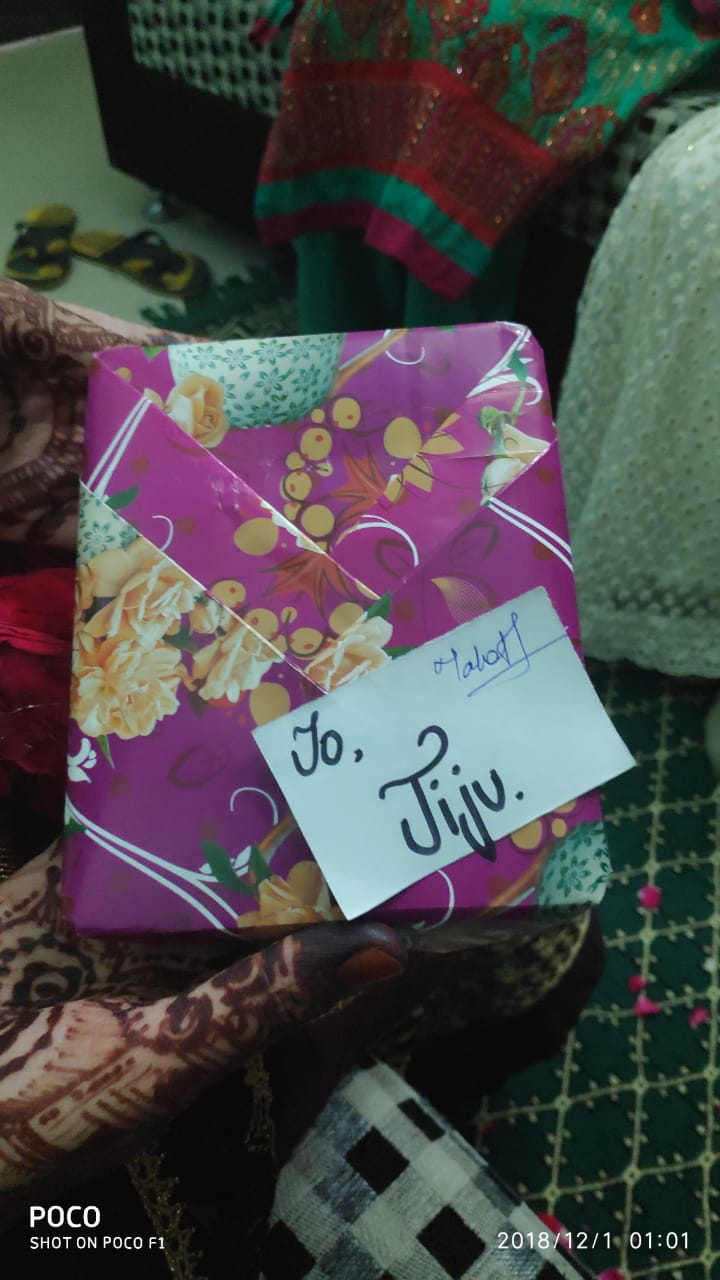 To,
Jiju.
POCO
SHOT ON POCO F1
2018/12/1 01:01